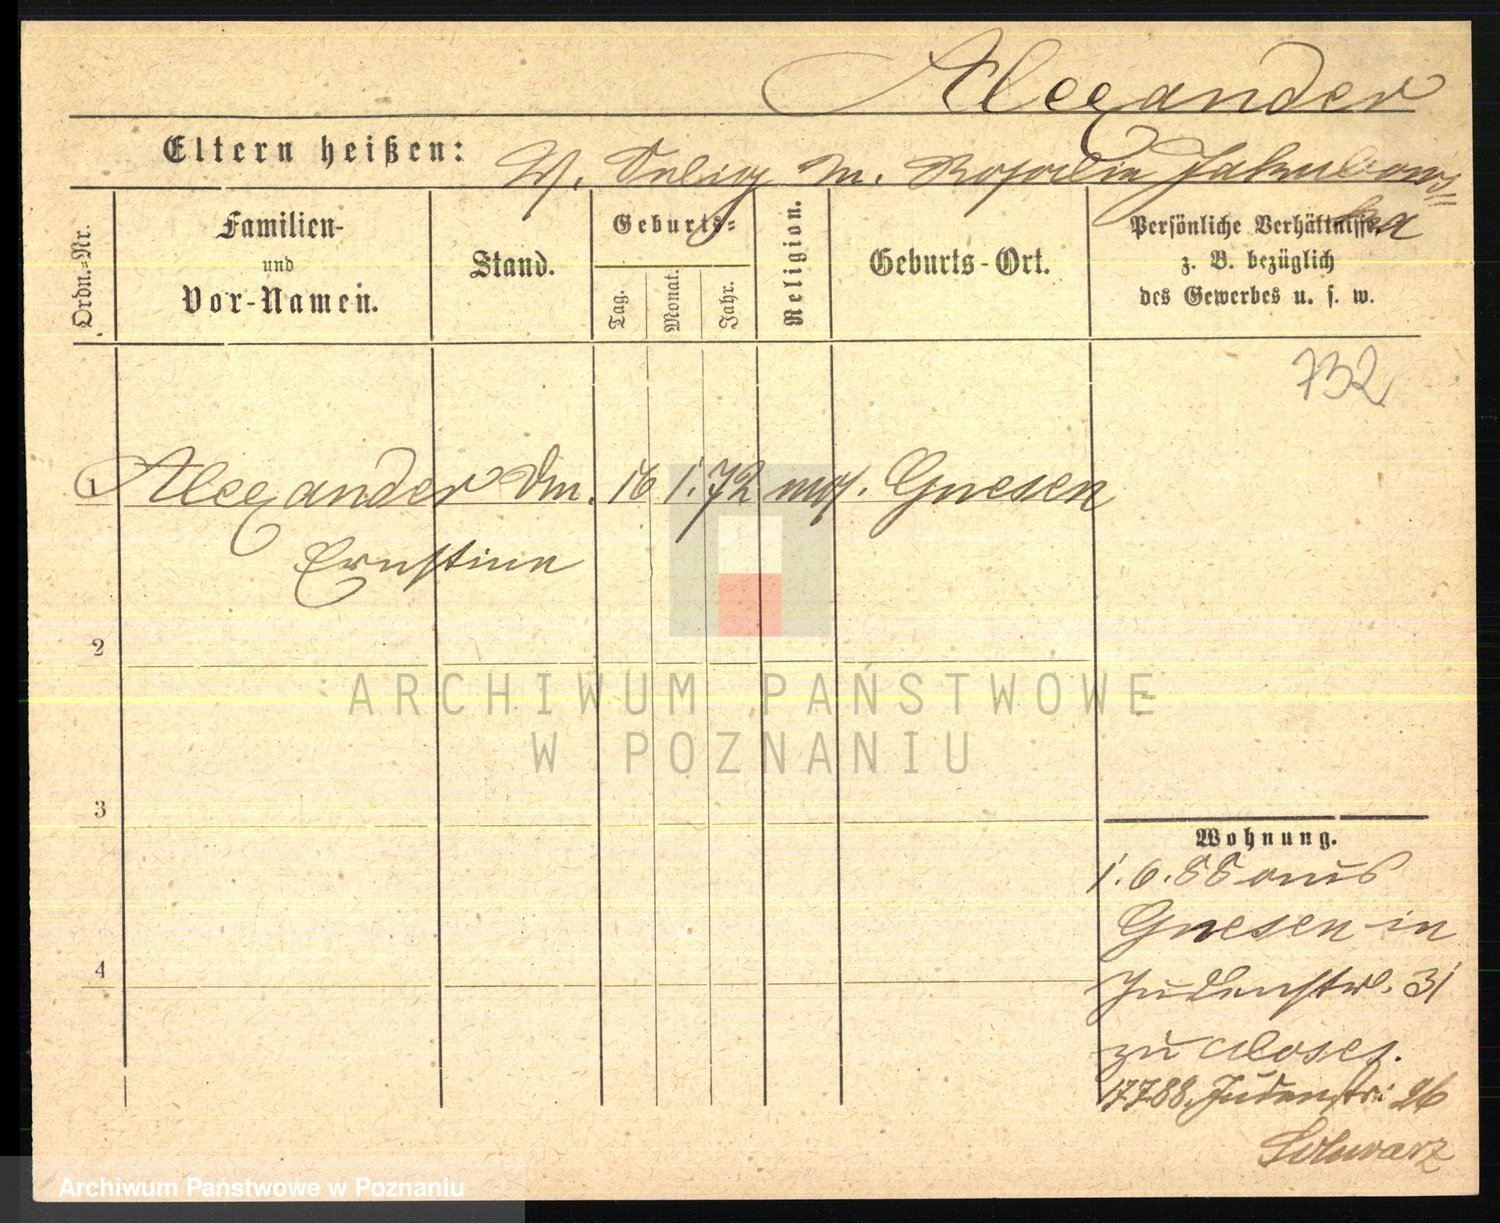 Alexander
Eltern heißen: V. Selig M. Rosalie Jakubows=
ka
Ordn.=Nr.
Familien-
und
Vor-Namen.
Stand.
Geburts=
Tag.
Monat.
Jahr.
Religion.
Geburts-Ort.
Persönliche Verhältnisse
z. B. bezüglich
des Gewerbes u. s. w.
732
1 Alexander Dm. 16 1. 72 mos. Gnesen
Ernstine
2
3
4
Wohnung.
1. 6. 88 aus
Gnesen in
Judenstr. 31
zu Moses.
17788. Judenstr: 26
Schwarz
ARCHIWUM PAŃSTWOWE
W POZNANIU
Archiwum Państwowe w Poznaniu